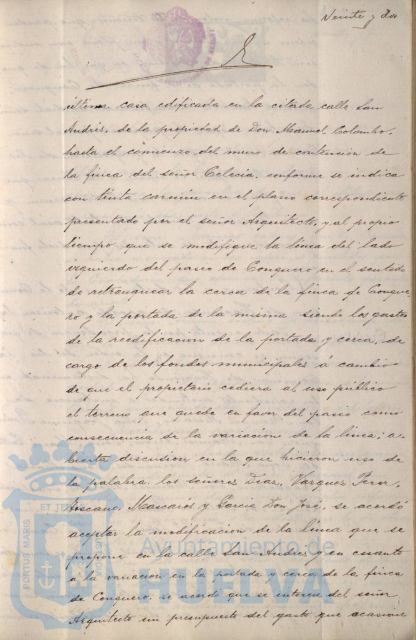 Veinte y dos
última casa edificada en la citada calle San
Andrés, de la propiedad de Don Manuel Colombo,
hasta el comienzo del muro de contensión de
la finca del señor Eclecia, conforme se indica
con tinta carmin en el plano correspondiente
presentado por el señor Arquitecto, y al propio
tiempo que se modifique la línea del lado
izquierdo del paseo de Conquero en el sentido
de retranquear la cerca de la finca de Conque-
ro y la portada de la misma siendo los gastos
de la reedificacion de la portada y cerca, de
cargo de los fondos municipales á cambio
de que el propietario cediera al uso público
el terreno que quede en favor del paseo como
consecuencia de la variacion de la linea; a-
bierta discusion en la que hicieron uso de
la palabra los señores Diaz, Vazquez Perez,
Mascarós y Garcia Don José, se acordó
aceptar la modificacion de la línea que se
propone en la calle San Andrés y en cuanto
a la variacion en la portada y cerca de la finca
de Conquero, se acordó que se interese del señor
Arquitecto un presupuesto del gasto que ocasione
PORTUS MARIS
ET
Ayuntamiento de
HUELVA